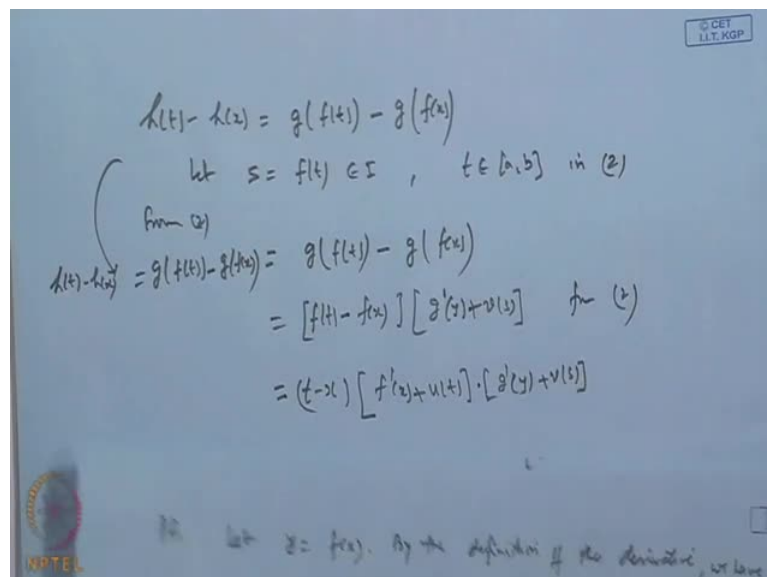 © CET
I.I.T. KGP
h(t) - h(x) = g(f(t)) - g(f(x))
let s = f(t) ∈ I , t ∈ [a, b] in (2)
from (2)
h(t)-h(x) = g(f(t))-g(f(x)) = g(f(t)) - g(f(x))
= [f(t) - f(x)] [g'(y) + v(s)] for (2)
= (t-x) [f'(x) + u(t)] · [g'(y) + v(s)]
let y = f(x). By the definition of the derivative, we have
NPTEL